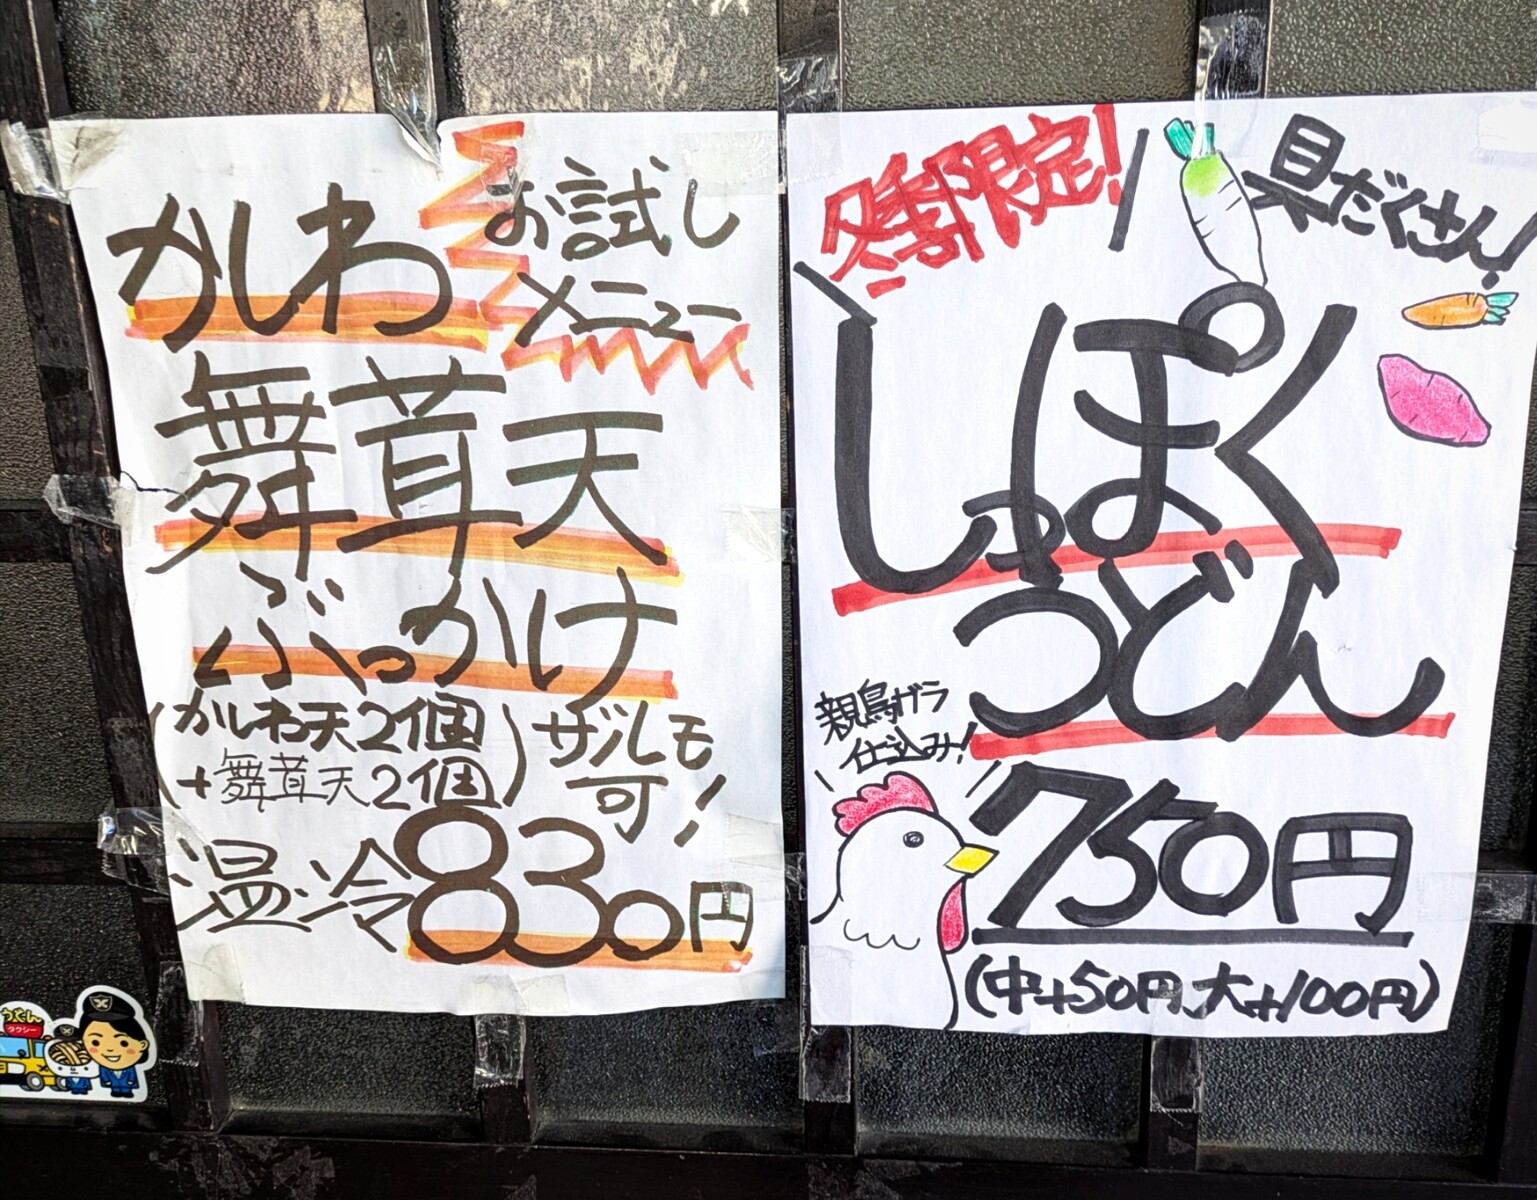 かしわ
お試し
メニュー
舞茸天
ぶっかけ
(かしわ天2個
+舞茸天2個)
ザルモ
可!
温・冷830円
冬季限定!
具だくさん!
しっぽく
うどん
親鳥ガラ
仕込み!
750円
(中+50円、大+100円)
うどん
タクシー